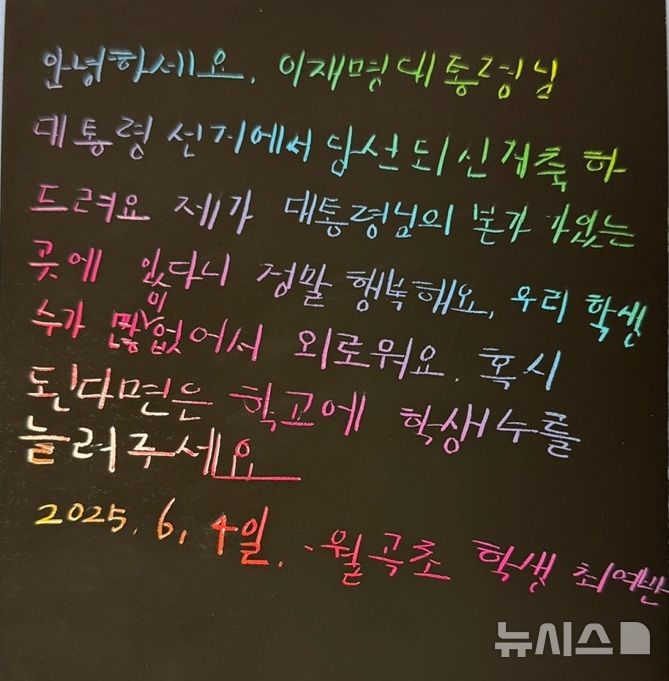 안녕하세요. 이재명대통령님
대통령 선거에서 당선되신걸축하
드려요 제가 대통령님의 본가가있는
곳에 있다니 정말 행복해요. 우리 학생
이
수가 많 없어서 외로워요. 혹시
된다면은 학교에 학생수를
늘려주세요
2025. 6, 4일. - 월곡초 학생 최여반
뉴시스